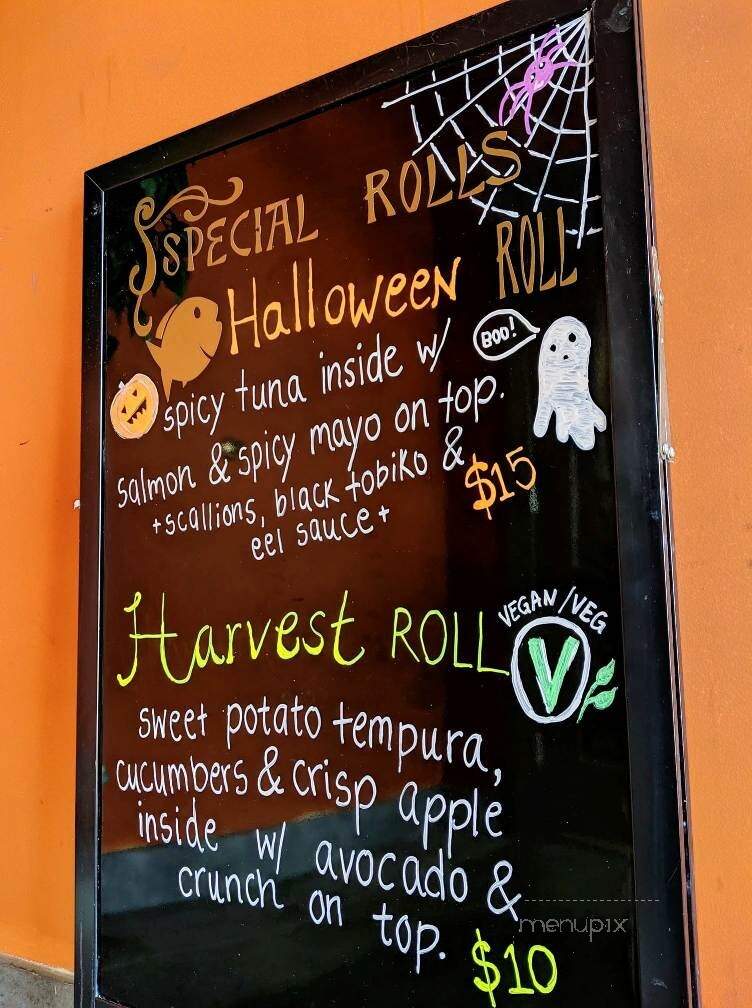 SPECIAL ROLLS
Halloween ROLL
BOO!
spicy tuna inside w/
salmon & spicy mayo on top.
+scallions, black tobiko &
eel sauce+
$15
Harvest ROLL
VEGAN/VEG
V
sweet potato tempura,
cucumbers & crisp apple
inside w/ avocado &
crunch on top.
$10
menupix